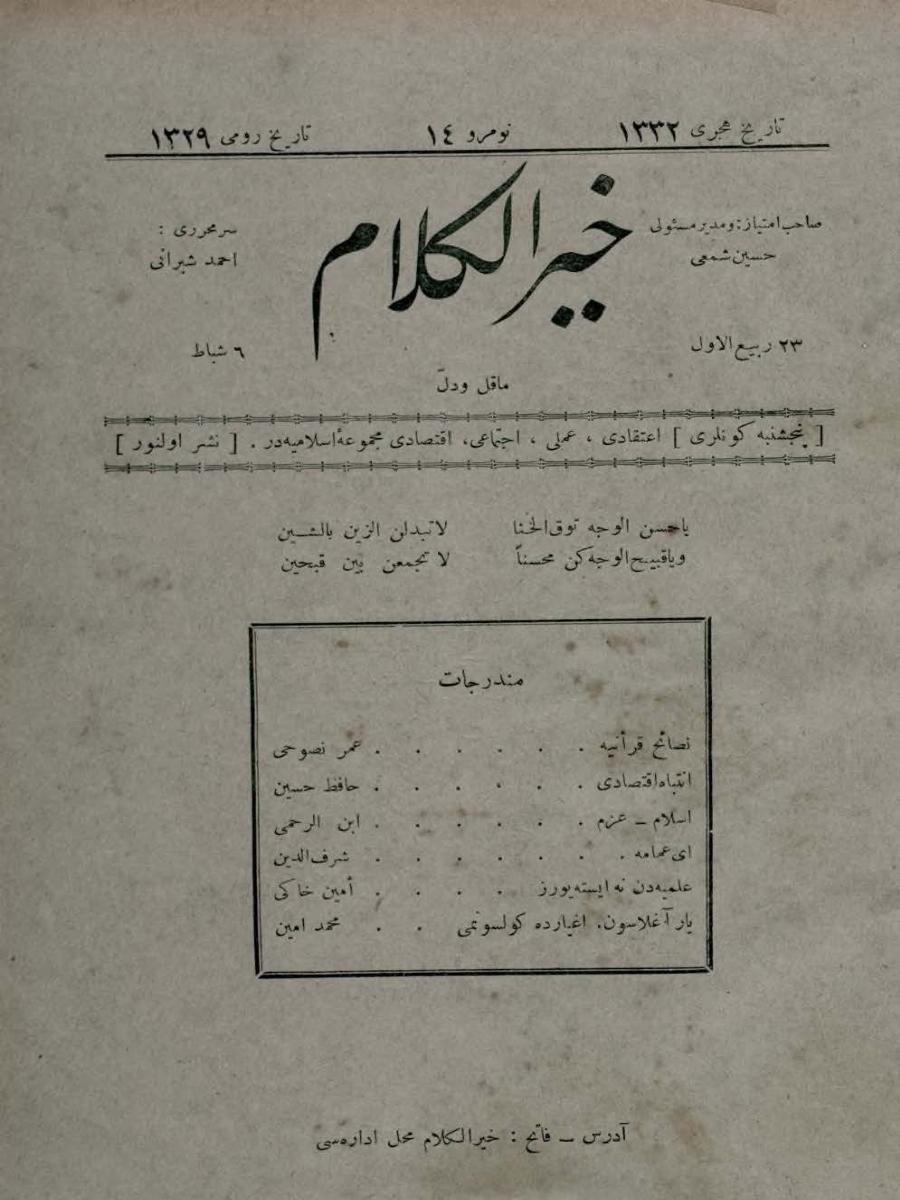 تاریخ هجری ١٣٣٢ نومرو ١٤ تاریخ رومی ١٣٢٩
خیرالکلام
صاحب امتیاز: ومدیر مسئولی
حسین شمعی
سرمحرری :
احمد شیرانی
٢٣ ربیع الاول
٦ شباط
ماقل ودلّ
[ پنجشنبه کونلری ] اعتقادی ، عملی ، اجتماعی، اقتصادی مجموعهٔ اسلامیه‌در . [ نشر اولنور ]
یاحسن الوجه توق الخنا لاتبدلن الزین بالشین
ویاقبیح الوجه کن محسناً لا تجمعن بین قبحین
مندرجات
نصائح قرآنیه . . . . . . عمر نصوحی
انتباه اقتصادی . . . . . . حافظ حسین
اسلام ـ عزم . . . . . . ابن الرحمی
ای عمامه . . . . . . . شرف‌الدین
علمیه‌دن نه ایسته‌یورز . . . . أمین خاکی
یار آغلاسون. اغیارده کولسونمی . . محمد امین
آدرس ـ فاتح : خیرالکلام محل اداره‌سی